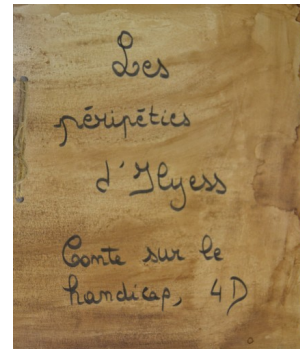 Les
péripéties
d'Ilyess
Conte sur le
handicap, 4D